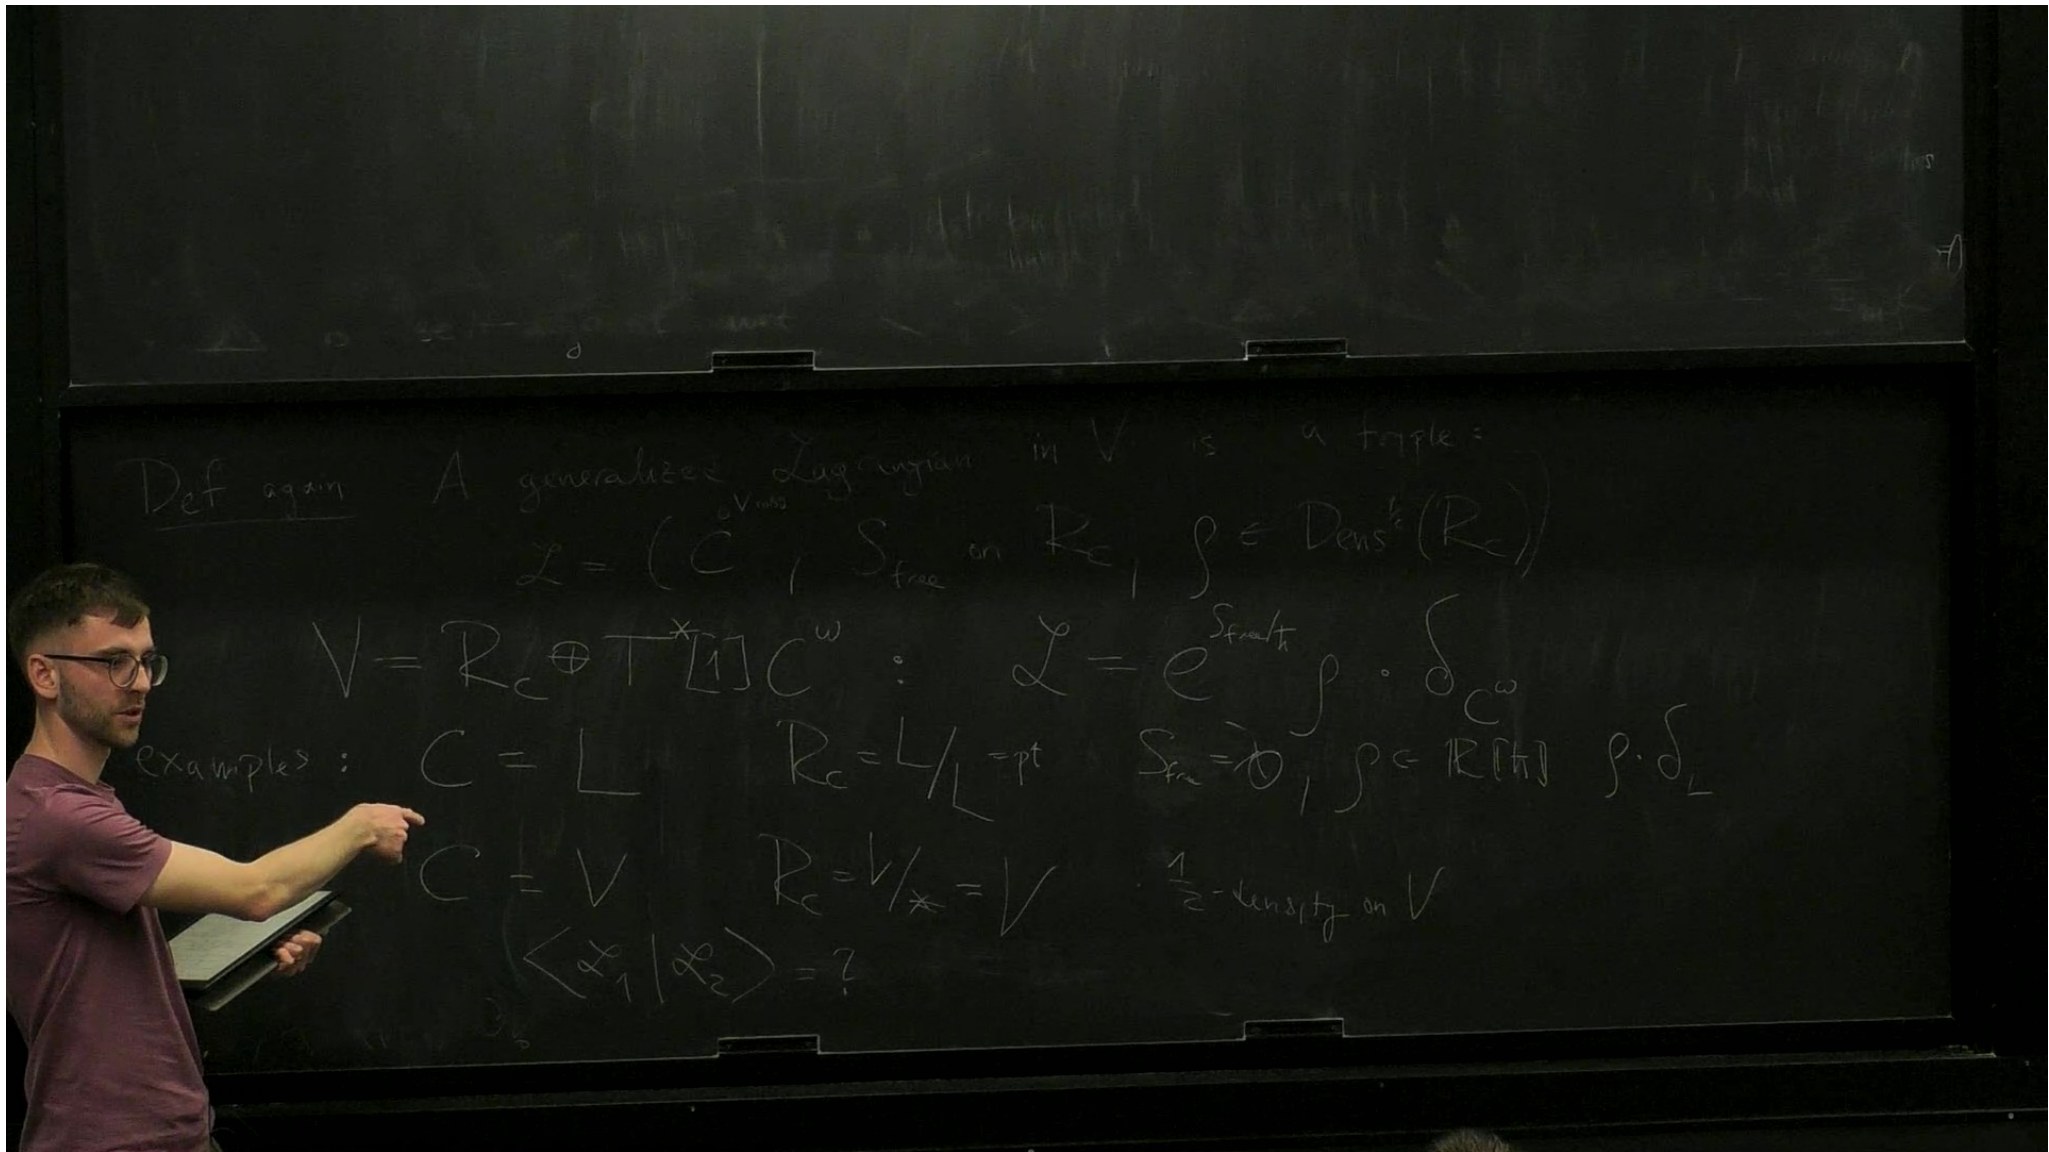 Def again A generalized Lagrangian in V is a triple:
ℒ = ( C , S_free on R_C , ρ ∈ Dens^{½}(R_C) )
V = R_C ⊕ T*[1] C^ω : ℒ = e^{S_free/ħ} ρ · δ_{C^ω}
examples : C = L R_C = L/L = pt S_free = 0 , ρ ∈ ℝ[ħ] ρ · δ_L
C = V R_C = V/* = V ½-density on V
⟨ ℒ_1 | ℒ_2 ⟩ = ?